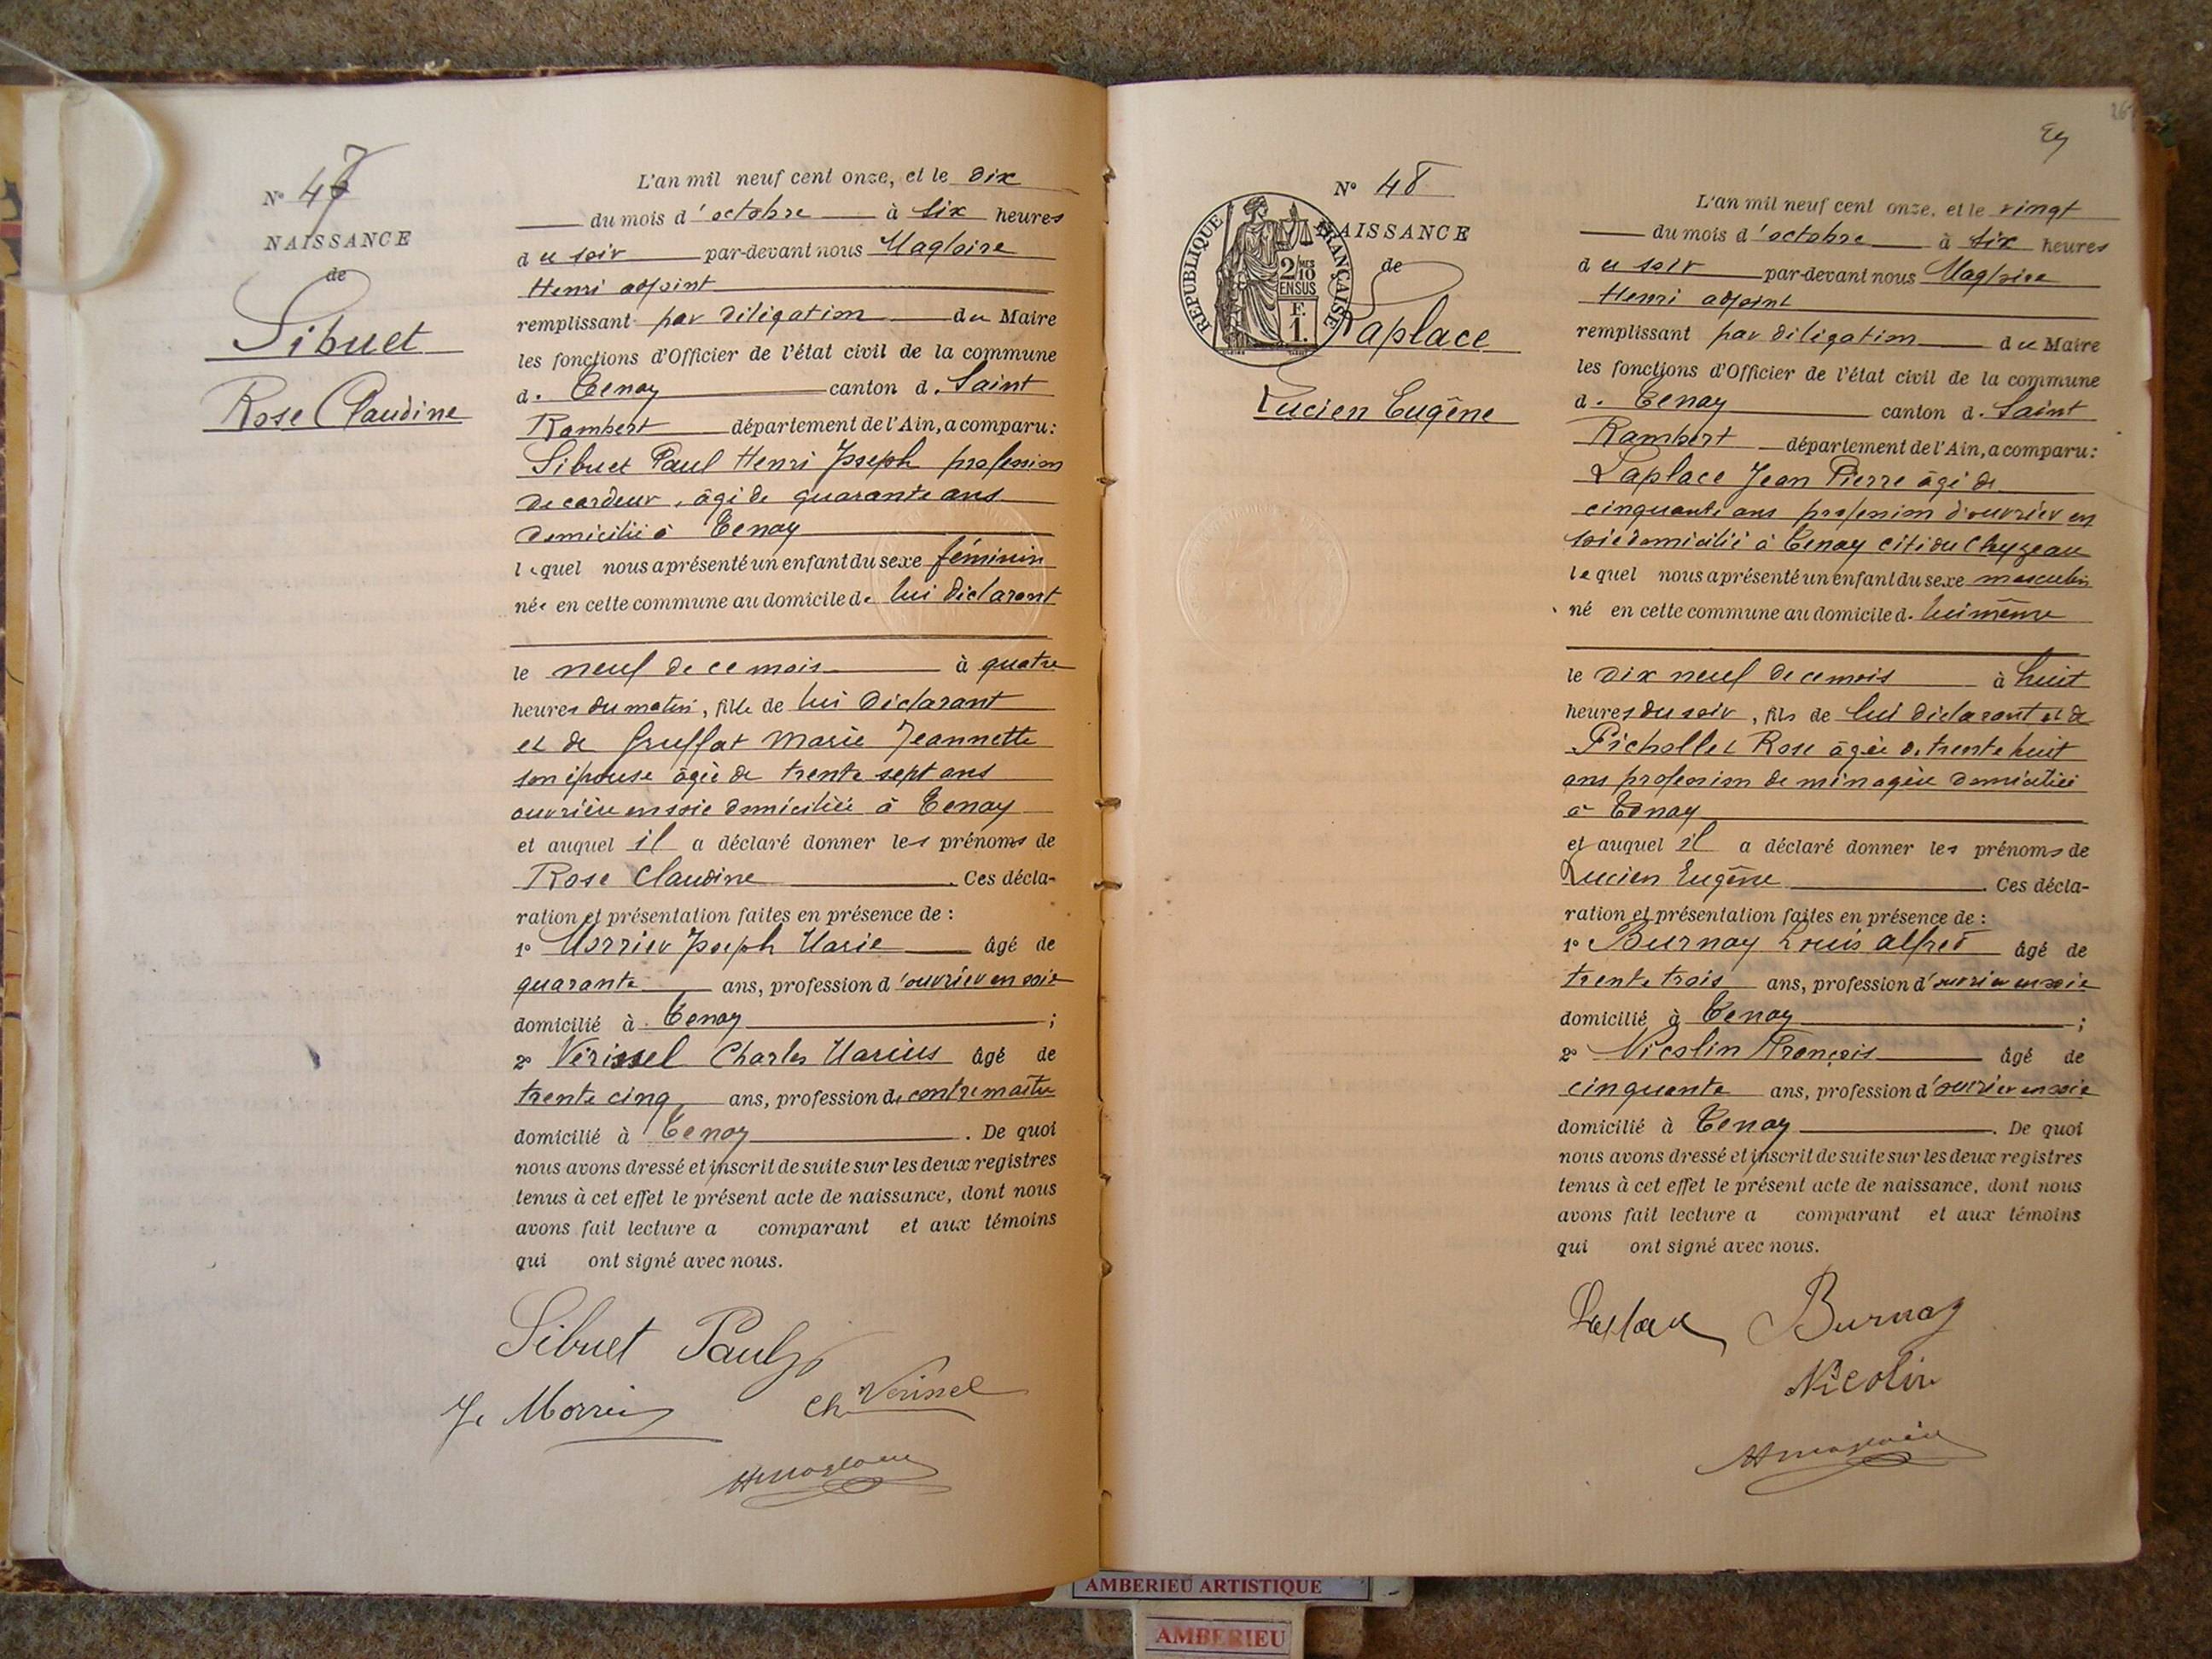 N° 47
NAISSANCE
de
Sibuet
Rose Claudine
L'an mil neuf cent onze, et le dix
du mois d'octobre à six heures
du soir par-devant nous Magloire
Henri adjoint
remplissant par déligation du Maire
les fonctions d'Officier de l'état civil de la commune
de Tenay canton de Saint
Rambert département de l'Ain, a comparu:
Sibuet Paul Henri Joseph profession
de cardeur, âgé de quarante ans
domicilié à Tenay
lequel nous a présenté un enfant du sexe féminin
née en cette commune au domicile de lui déclarant
le neuf de ce mois à quatre
heures du matin, fille de lui déclarant
et de Gruffat Marie Jeannette
son épouse âgée de trente sept ans
ouvrière en soie domiciliée à Tenay
et auquel il a déclaré donner les prénoms de
Rose Claudine. Ces décla-
ration et présentation faites en présence de :
1° Morrier Joseph Marie âgé de
quarante ans, profession d'ouvrier en soie
domicilié à Tenay ;
2° Vérissel Charles Marius âgé de
trente cinq ans, profession de contremaître
domicilié à Tenay. De quoi
nous avons dressé et inscrit de suite sur les deux registres
tenus à cet effet le présent acte de naissance, dont nous
avons fait lecture a comparant et aux témoins
qui ont signé avec nous.
Sibuet Paul
Je Morrier
Ch Vérissel
HMagloire
26
N° 48
NAISSANCE
de
Laplace
Lucien Eugène
RÉPUBLIQUE FRANÇAISE
2/10 MES
EN SUS
F.
1.
L'an mil neuf cent onze, et le vingt
du mois d'octobre à six heures
du soir par-devant nous Magloire
Henri adjoint
remplissant par déligation du Maire
les fonctions d'Officier de l'état civil de la commune
de Tenay canton de Saint
Rambert département de l'Ain, a comparu:
Laplace Jean Pierre âgé de
cinquante ans profession d'ouvrier en
soie domicilié à Tenay cité du Chyzeau
lequel nous a présenté un enfant du sexe masculin
né en cette commune au domicile de lui même
le dix neuf de ce mois à huit
heures du soir, fils de lui déclarant et de
Pichollet Rose âgée de trente huit
ans profession de ménagère domiciliée
à Tenay
et auquel il a déclaré donner les prénoms de
Lucien Eugène. Ces décla-
ration et présentation faites en présence de :
1° Burnay Louis Alfred âgé de
trente trois ans, profession d'ouvrier en soie
domicilié à Tenay ;
2° Nicolin François âgé de
cinquante ans, profession d'ouvrier en soie
domicilié à Tenay. De quoi
nous avons dressé et inscrit de suite sur les deux registres
tenus à cet effet le présent acte de naissance, dont nous
avons fait lecture a comparant et aux témoins
qui ont signé avec nous.
Laplace Burnay
Nicolin
HMagloire
AMBERIEU ARTISTIQUE
AMBERIEU